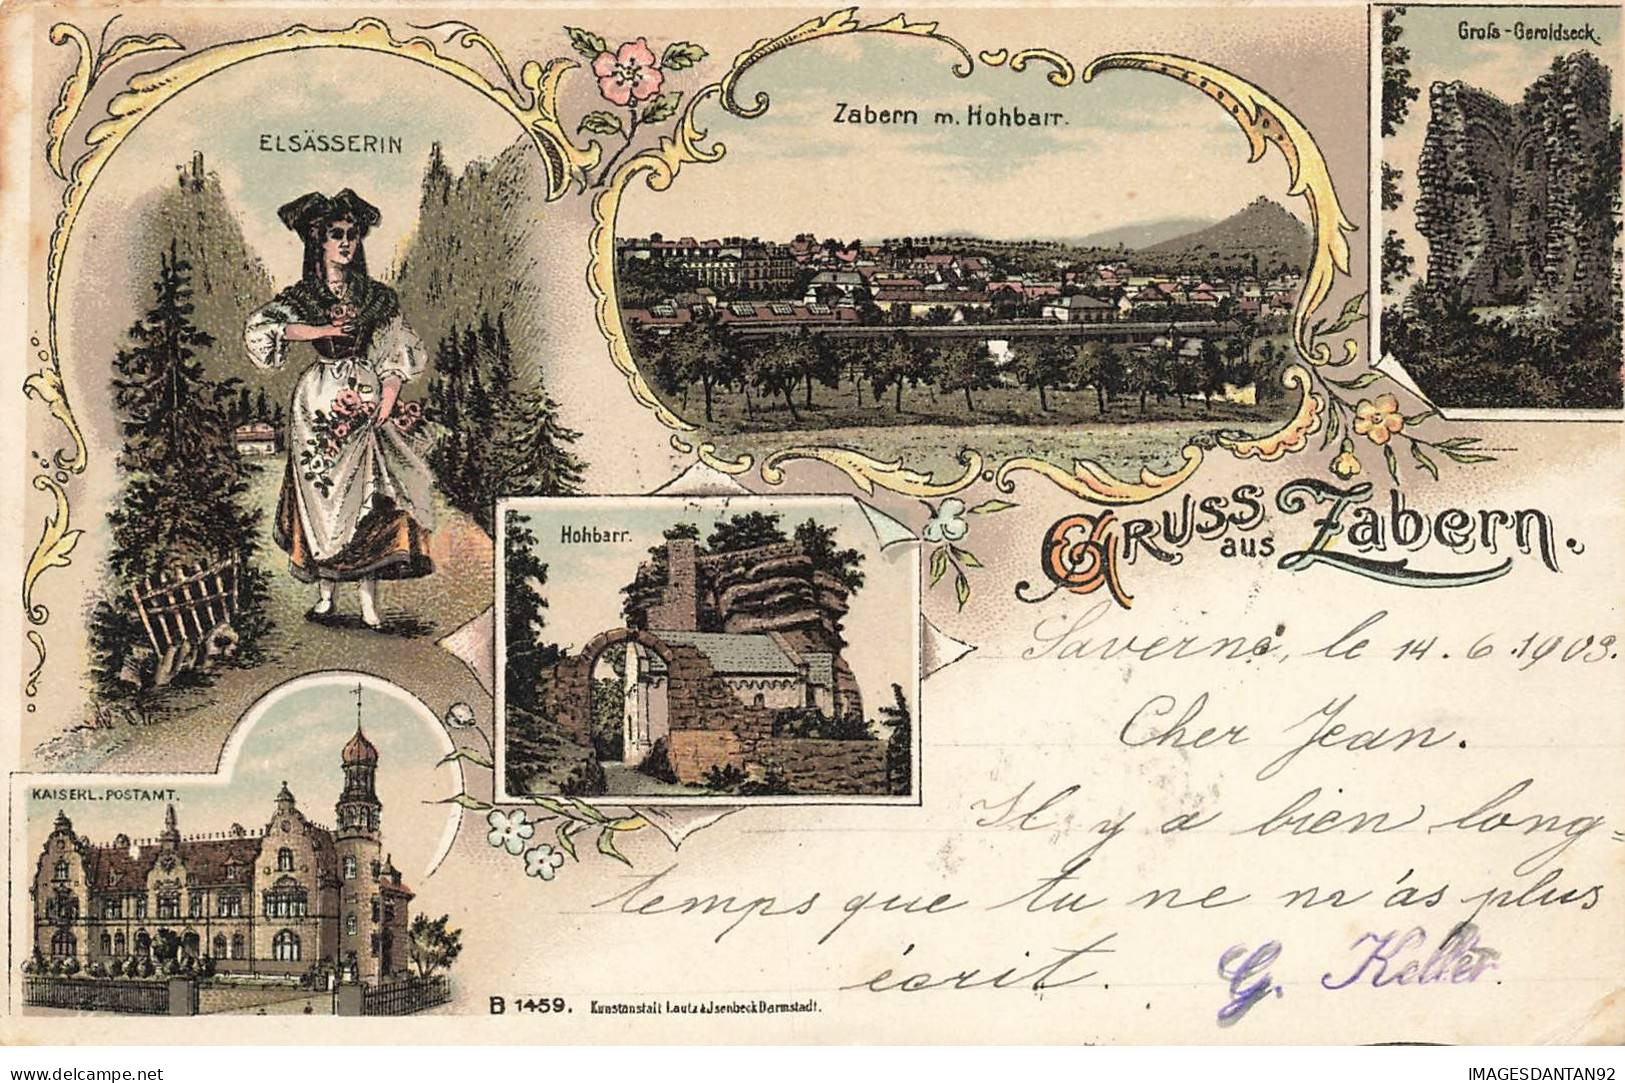 ELSÄSSERIN
Zabern m. Hohbarr.
Grofs-Geroldseck.
Hohbarr.
GRUSS aus Zabern.
KAISERL. POSTAMT.
Saverne, le 14.6.1903.
Cher Jean.
Il y a bien long=
temps que tu ne m'as plus
écrit. G. Keller.
B 1459. Kunstanstalt Lautz & Jsenbeck Darmstadt.
delcampe.net
IMAGESDANTAN92